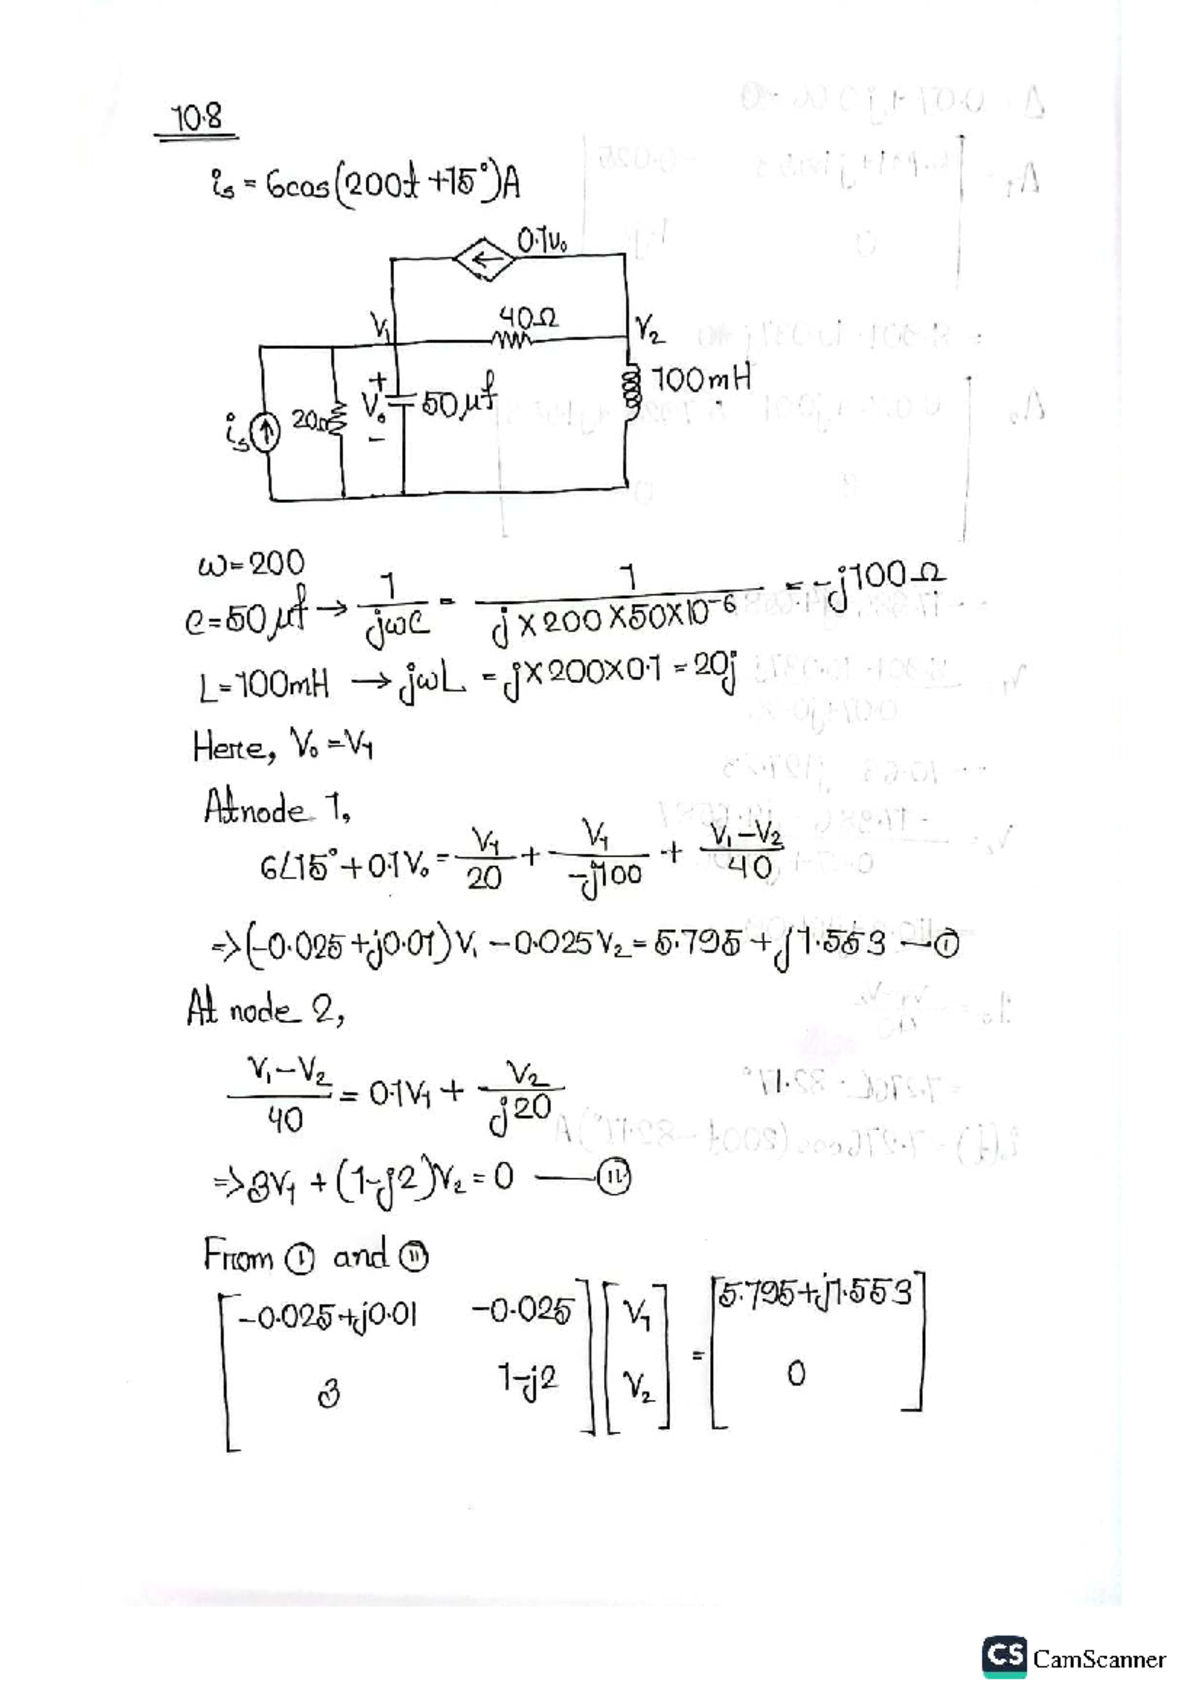 10.8
is = 6cos(200t +15°)A
0.1v₀
40Ω
V₁
V₂
+
V₀
-
50μf
100mH
20Ω
is
ω=200
C=50μf → 1/jωC = 1/(j×200×50×10⁻⁶) = -j100Ω
L=100mH → jωL = j×200×0.1 = 20j
Here, V₀ = V₁
At node 1,
6∠15° + 0.1V₀ = V₁/20 + V₁/-j100 + (V₁-V₂)/40
⇒(-0.025+j0.01)V₁ - 0.025V₂ = 5.795 + j1.553 — (I)
At node 2,
(V₁-V₂)/40 = 0.1V₁ + V₂/j20
⇒ 3V₁ + (1-j2)V₂ = 0 — (II)
From (I) and (II)
[-0.025+j0.01 -0.025] [V₁] = [5.795+j1.553]
[3 1-j2] [V₂] [0]
CS CamScanner